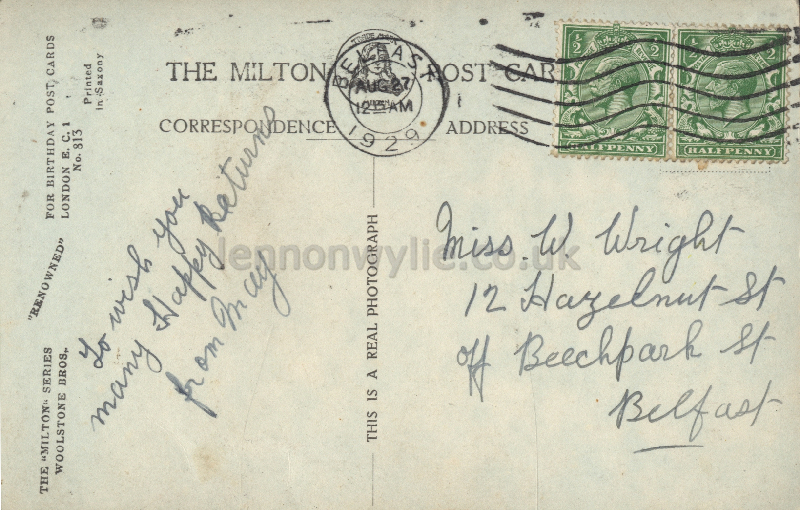 THE MILTON POST CAR
CORRESPONDENCE
ADDRESS
BELFAST
AUG 27
12 AM
1929
1/2 1/2
HALFPENNY
1/2 1/2
HALFPENNY
FOR BIRTHDAY POST CARDS
LONDON E.C.1
No. 813
Printed
in Saxony
"RENOWNED"
THE "MILTON" SERIES
WOOLSTONE BROS.,
To wish you
many Happy Returns
from May
THIS IS A REAL PHOTOGRAPH
Miss W. Wright
12 Hazelnut St
off Beechpark St
Belfast
lennonwylie.co.uk